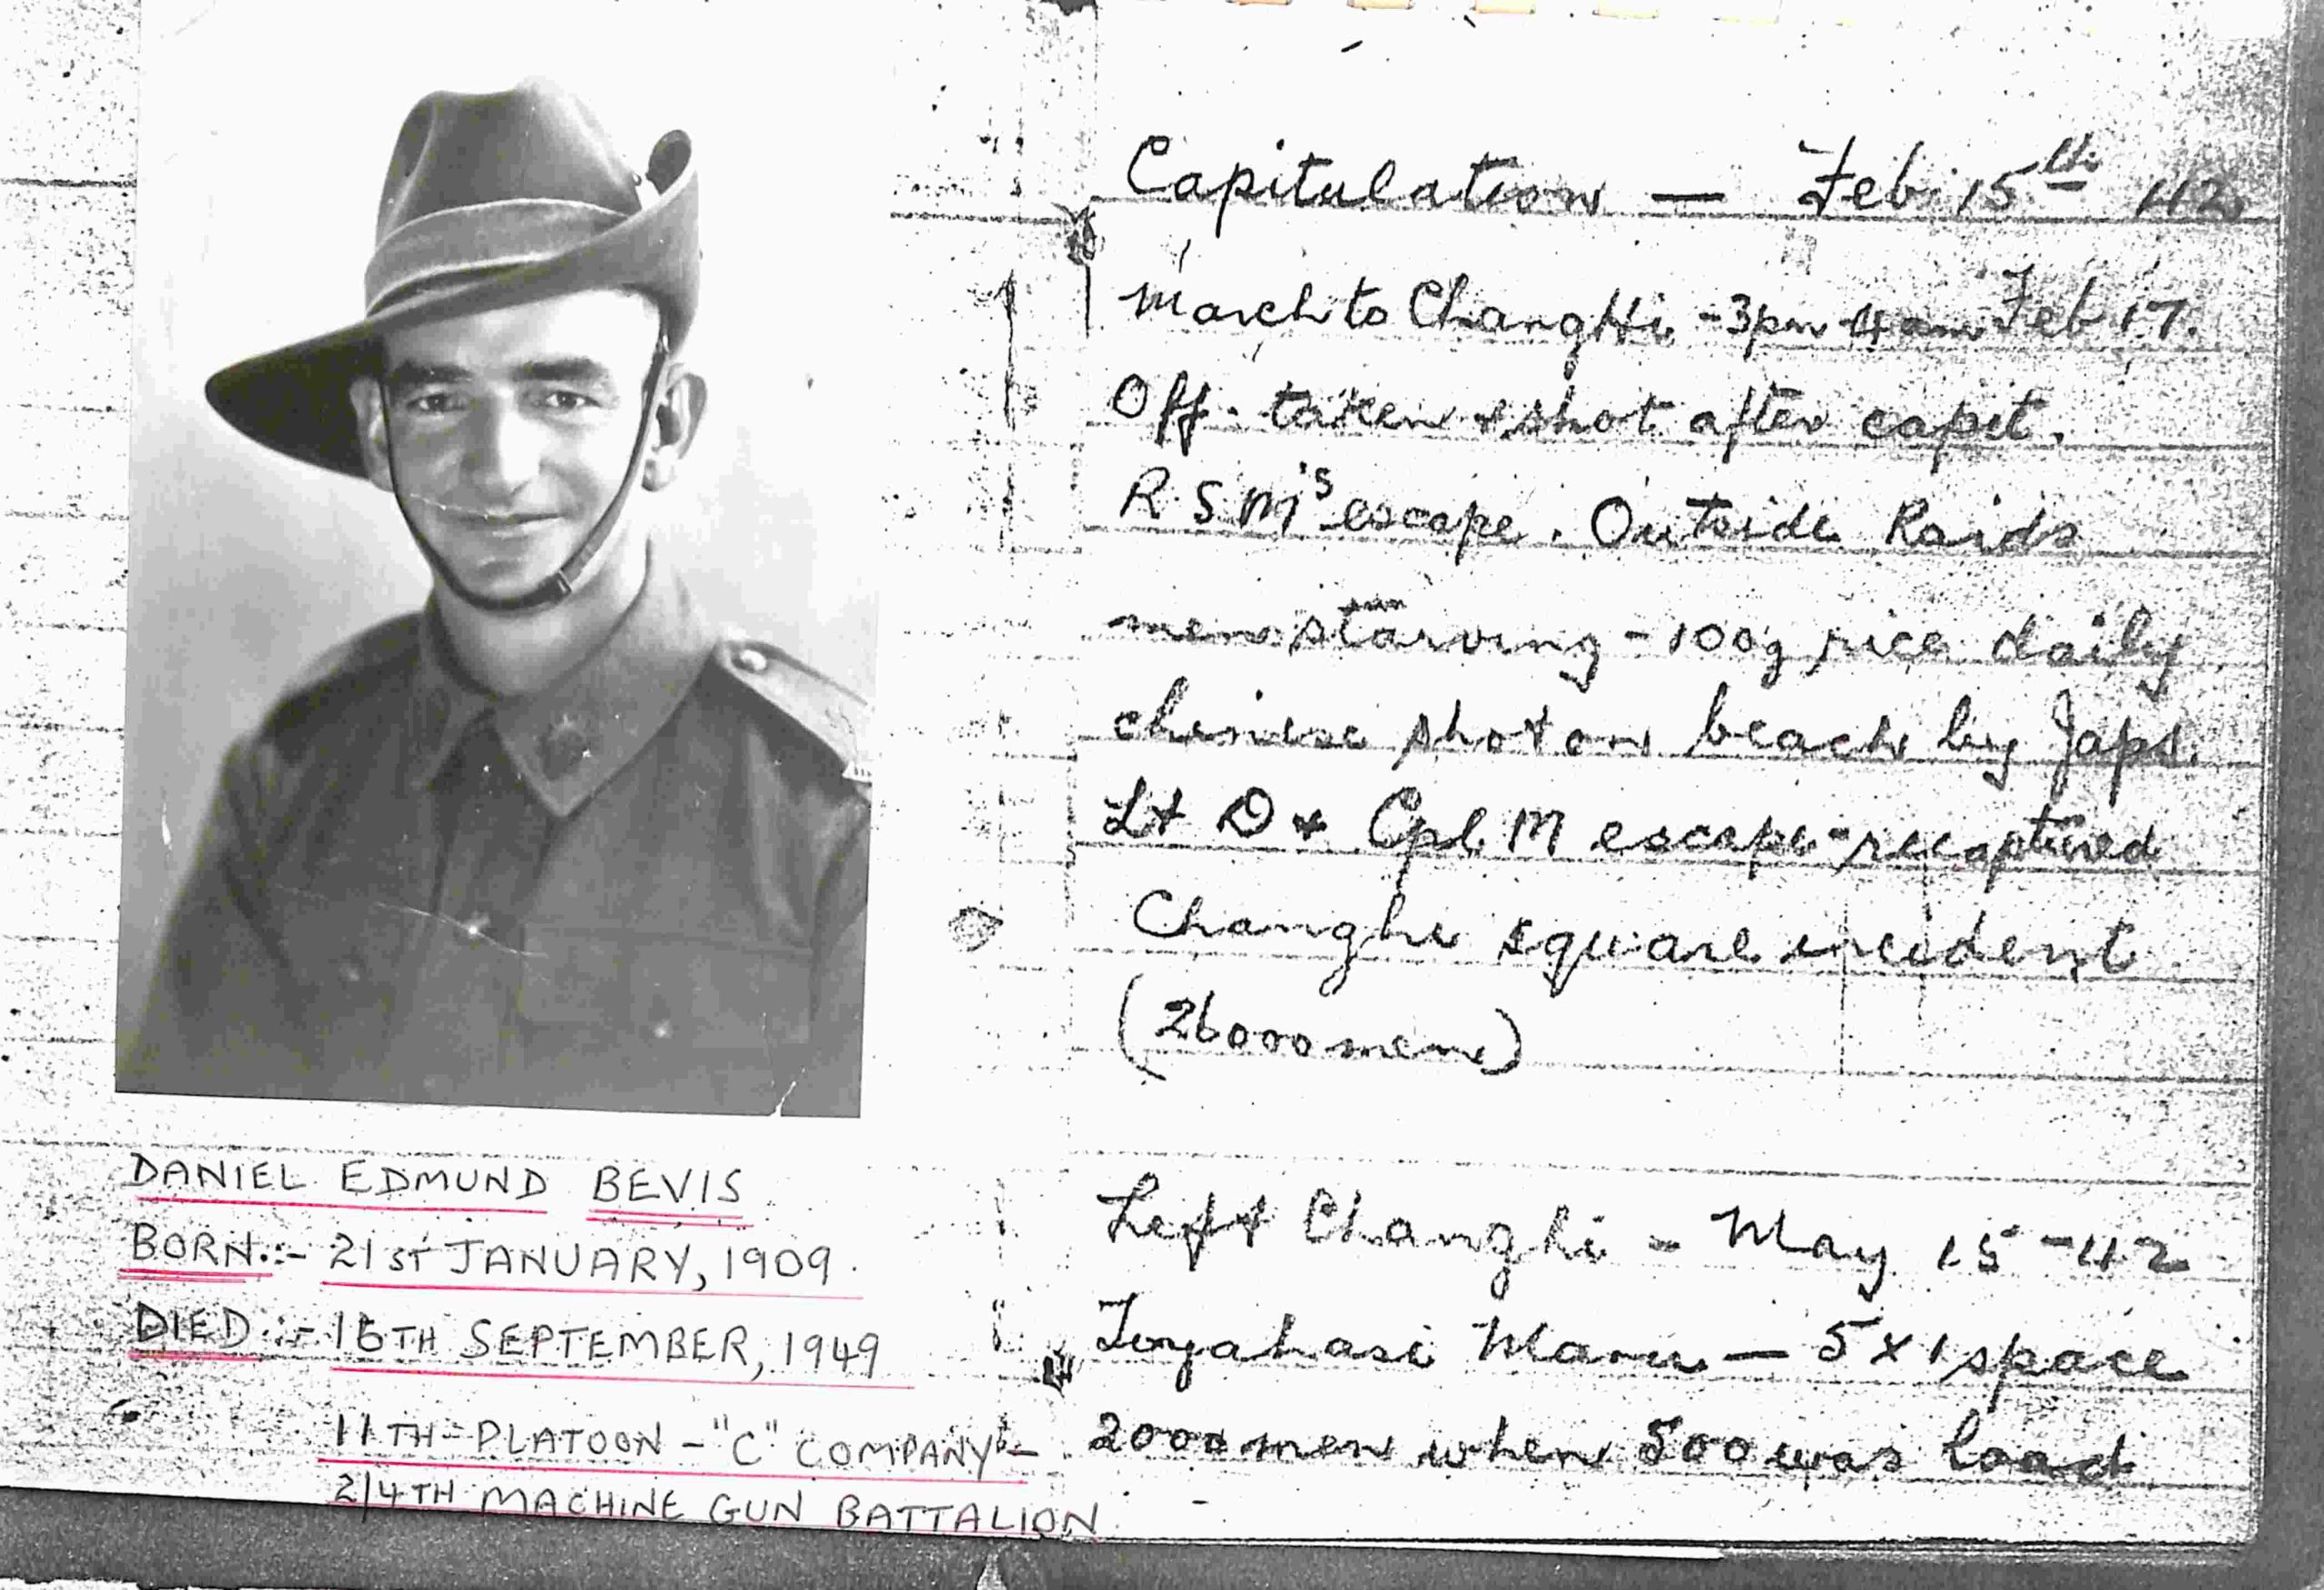 DANIEL EDMUND BEVIS
BORN:- 21ST JANUARY, 1909.
DIED:- 16TH SEPTEMBER, 1949
11TH - PLATOON - "C" COMPANY -
2/4TH MACHINE GUN BATTALION
Capitulation — Feb 15th 42
March to Changhi - 3pm - 4am Feb 17.
Off. taken & shot after capit.
RSM's escape. Outside Raids
men starving - 100g rice daily
chinese shot on beach by Japs.
Lt D & Cpl M escape - recaptured
Changhi square incident
(26000 men)
Left Changhi - May 15 - 42
Maru — 5 x 1 space
2000 men when 500 was load